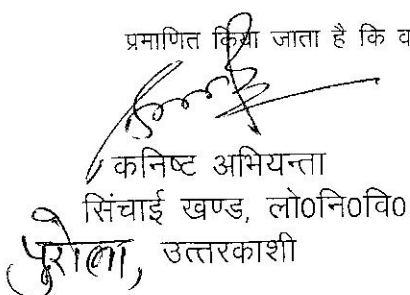 प्रमाणित किया जाता है कि व
कनिष्ट अभियन्ता
सिंचाई खण्ड, लो0नि0वि0
पुरोला, उत्तरकाशी